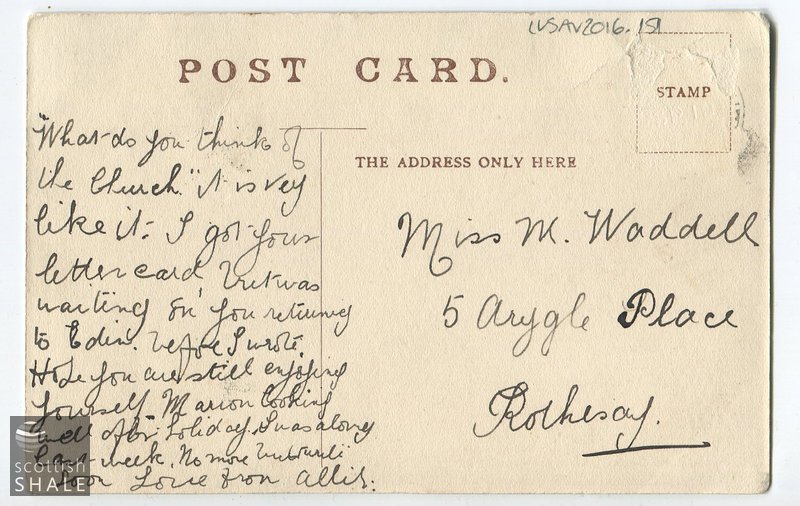 LVSAV2016.151
POST CARD.
STAMP
THE ADDRESS ONLY HERE
"What do you think of
the Church." it is very
like it. I got your
letter card, but was
waiting on you returning
to Edin. before I wrote.
Hope you are still enjoying
yourself. Marion looking
well after holiday. I was along
last week. No more
soon Love from
Miss M. Waddell
5 Arygle Place
Rothesay.
scottish
SHALE